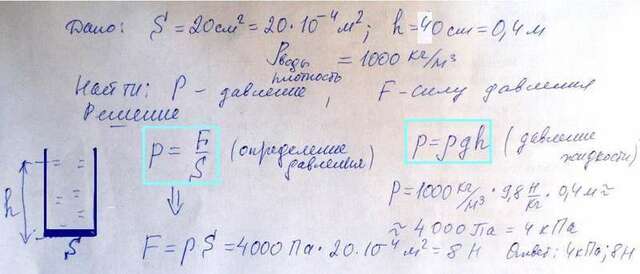 Дано: S = 20 см² = 20·10⁻⁴ м²; h = 40 см = 0,4 м
ρводы = 1000 кг/м³
плотность
Найти: P - давление, F - силу давления
Решение
P = F/S (определение давления)
p = ρgh (давление жидкости)
P = 1000 кг/м³ · 9,8 Н/кг · 0,4 м ≈
≈ 4000 Па = 4 кПа
h
S
F = pS = 4000 Па · 20·10⁻⁴ м² = 8 Н Ответ: 4 кПа; 8 Н